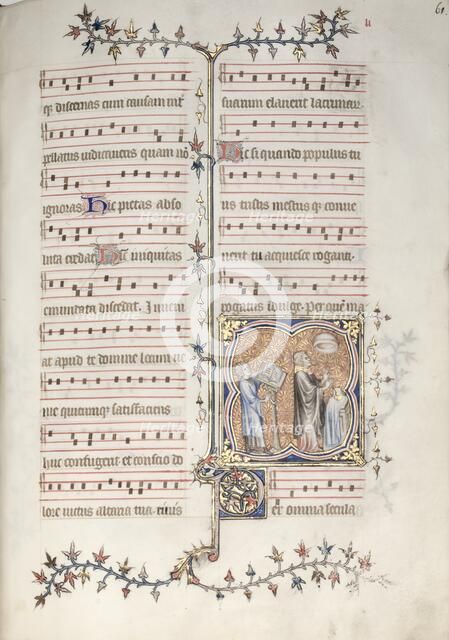 61
u
q; discernas cum causam int
pellatus iudicaueris quam nō
ignoras Hic pietas abso
luta cedat Hic iniquitas
emundata discedat. Inueni
at apud te domine locum ue
nie quicumq; satisfaciens
huc confugerit et conscio do
lore uictus altaria tua riuis
suarum eluerit lacrimar
Hic si quando populus tu
us tristis mestus q; conue
nerit tu acquiesce rogari.
rogatus indulge. Per quē ma
Per omnia secula
Heritage
Images
Heritage
Images
Heritage
Images